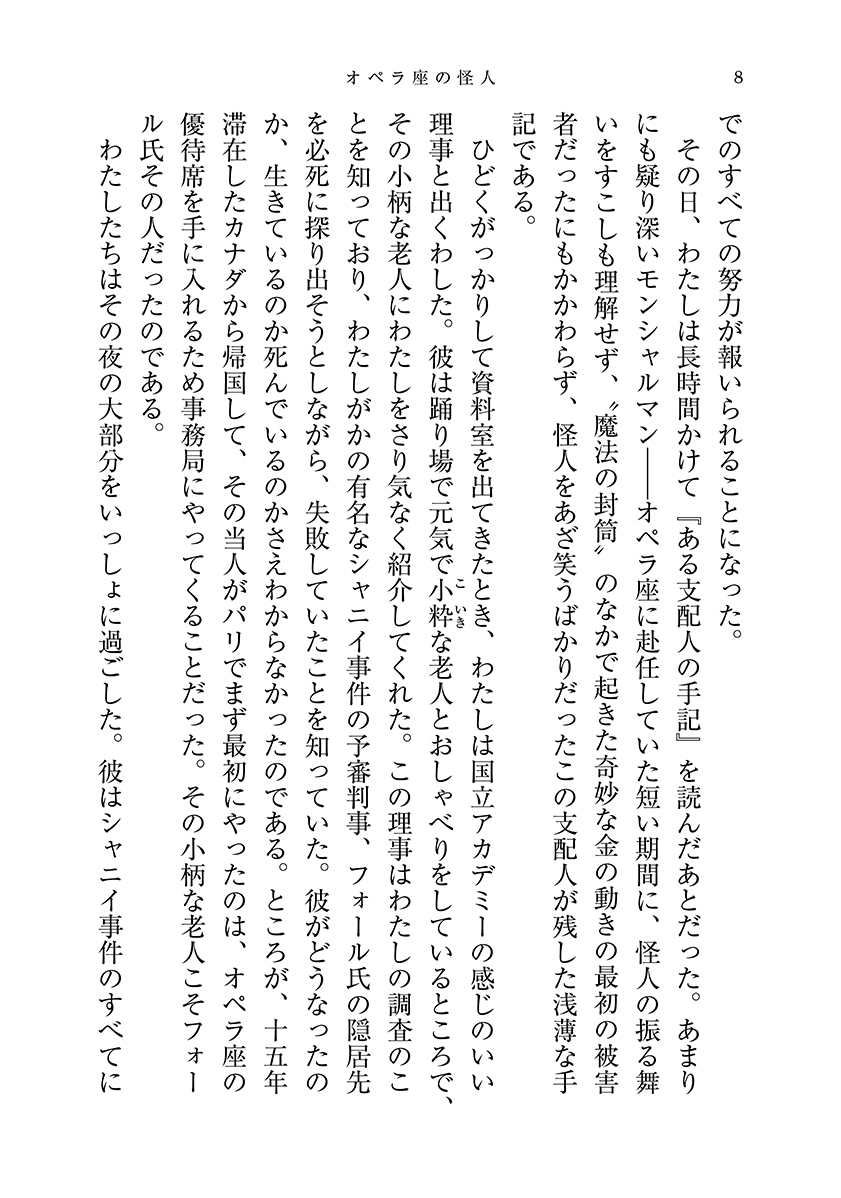 オペラ座の怪人
8
でのすべての努力が報いられることになった。
その日、わたしは長時間かけて『ある支配人の手記』を読んだあとだった。あまり
にも疑り深いモンシャルマン――オペラ座に赴任していた短い期間に、怪人の振る舞
いをすこしも理解せず、〝魔法の封筒〟のなかで起きた奇妙な金の動きの最初の被害
者だったにもかかわらず、怪人をあざ笑うばかりだったこの支配人が残した浅薄な手
記である。
ひどくがっかりして資料室を出てきたとき、わたしは国立アカデミーの感じのいい
理事と出くわした。彼は踊り場で元気で小粋こいきな老人とおしゃべりをしているところで、
その小柄な老人にわたしをさり気なく紹介してくれた。この理事はわたしの調査のこ
とを知っており、わたしがかの有名なシャニイ事件の予審判事、フォール氏の隠居先
を必死に探り出そうとしながら、失敗していたことを知っていた。彼がどうなったの
か、生きているのか死んでいるのかさえわからなかったのである。ところが、十五年
滞在したカナダから帰国して、その当人がパリでまず最初にやったのは、オペラ座の
優待席を手に入れるため事務局にやってくることだった。その小柄な老人こそフォー
ル氏その人だったのである。
わたしたちはその夜の大部分をいっしょに過ごした。彼はシャニイ事件のすべてに